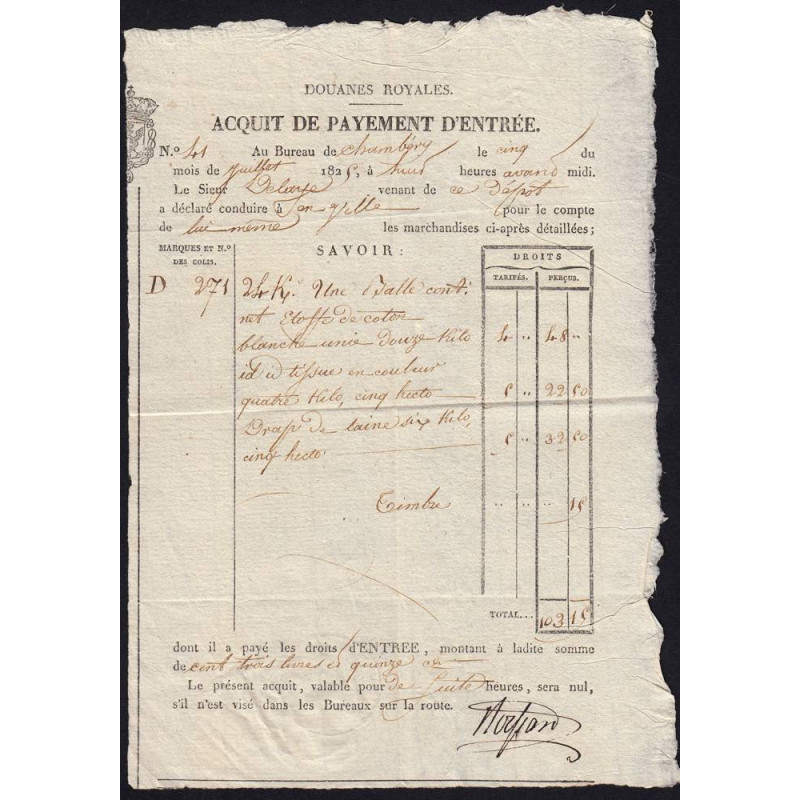 DOUANES ROYALES.
ACQUIT DE PAYEMENT D'ENTRÉE.
N.º 41 Au Bureau de chambéry le cinq du
mois de Juillet 1825, à huit heures avant midi.
Le Sieur Delarge venant de ce Dépot
a déclaré conduire à en Ville pour le compte
de lui même les marchandises ci-après détaillées;
MARQUES ET N.º
DES COLIS.
SAVOIR:
DROITS
TARIFÉS. PERÇUS.
D 271 24 K.º Une Balle cont.
net Etoffe de coton
blanche unie Douze Kilo 4 " 48 "
id id tissue en couleur
quatre Kilo, cinq hecto 5 " 22 50
Drap de laine six Kilo,
cinq hecto 5 " 32 50
Timbre " " " 15
TOTAL... 103 15
dont il a payé les droits d'ENTREE, montant à ladite somme
de cent trois livres et quinze
Le présent acquit, valable pour de suite heures, sera nul,
s'il n'est visé dans les Bureaux sur la route.